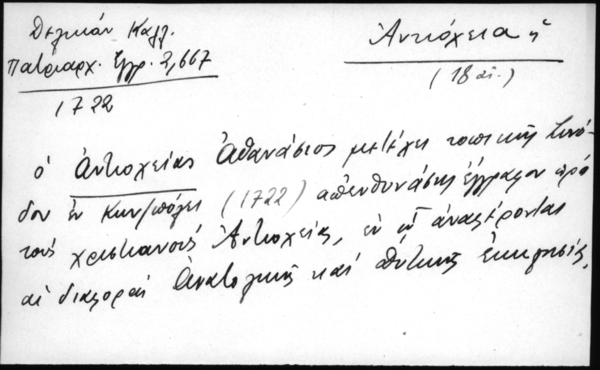 Δελικάν Καλλ.
Πατριαρχ. Έγγρ. 2,667
1722
Ἀντιόχεια ἡ
(18 αἰ.)
ὁ Ἀντιοχείας Ἀθανάσιος μετέχει τοπικῆς Συνό-
δου ἐν Κων/πόλει (1722) ἀπευθυνάσης ἔγγραφον πρὸ
τοὺς χριστιανοὺς Ἀντιοχείας, ἐν ᾧ ἀναφέρονται
αἱ διαφοραὶ Ἀνατολικῆς καὶ Δυτικῆς Ἐκκλησίας.